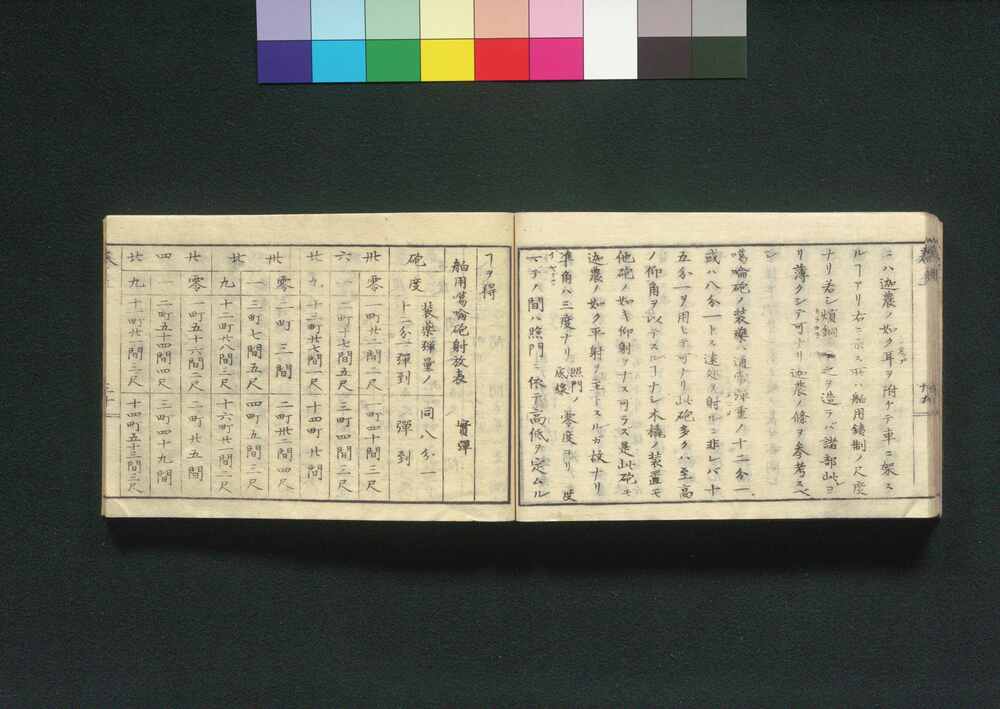 ニハ迦農ノ如ク耳ヲ附ケテ車ニ架ス
ルヿアリ右ニ示ス所ハ舶用鋳制ノ尺度
ナリ若シ煩銅 之ヲ造ラバ諸部此ヨ
リ薄クシテ可ナリ迦農ノ條ヲ参考スベ
シ
噶噙砲ノ装藥ハ通常弾重ノ十二分一
或ハ八分一トス遠処ヲ射ルニ非レバ十
五分一ヲ用ヒテ可ナリ此砲多クハ至高
ノ仰角ヲ以テスルヿナシ木橇ノ装置モ
他砲ノ如キ仰射ヲナス可ラス是此砲モ
迦農ノ如ク平射ヲ主トスルガ故ナリ
準角ハ三度ナリ照門底線ノ零度ヨリ 度
マテノ間ハ照門ニ依テ高低ヲ定ムル
ヿヲ得
舶用噶噙砲射放表 實彈
砲 度 装藥彈量ノ十二分一彈到 同八分一彈到
卅 零 一町廿二間二尺 一町四十間三尺
六 一 二町十七間五尺 三町四間三尺
廿 九 十三町廿七間一尺 十四町廿間
卅 零 二町三間 二町廿二間四尺
一 三町七間五尺 四町五間三尺
廿 九 十二町廿八間三尺 十六町廿一間二尺
廿 零 一町五十六間二尺 二町廿五間
四 一 二町五十四間四尺 三町四十九間
廿 九 十一町廿二間三尺 十四町五十三間三尺